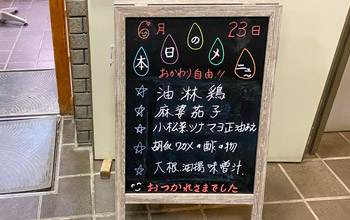 6月 23日
本日のメニュー
おかわり自由!!
☆ 油淋鶏
☆ 麻婆茄子
☆ 小松菜ツナマヨ正油あえ
☆ 胡瓜ワカメの酢の物
☆ 大根油揚味噌汁
おつかれさまでした